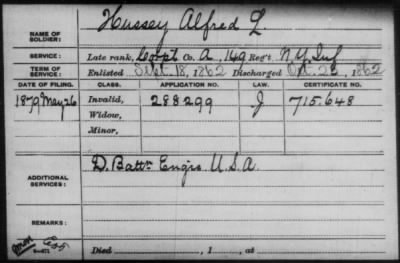 NAME OF SOLDIER: Hussey Alfred L
SERVICE: Late rank, Corpt Co. A, 149 Reg't N.Y. Inf
TERM OF SERVICE: Enlisted Sept. 18, 1862 Discharged Oct. 23, 1862
DATE OF FILING. CLASS. APPLICATION NO. LAW. CERTIFICATE NO.
1879 May 26 Invalid, 288299 J 715.648
Widow,
Minor,
ADDITIONAL SERVICES: D. Battn Engrs U.S.A.
REMARKS:
Died , 1 , at